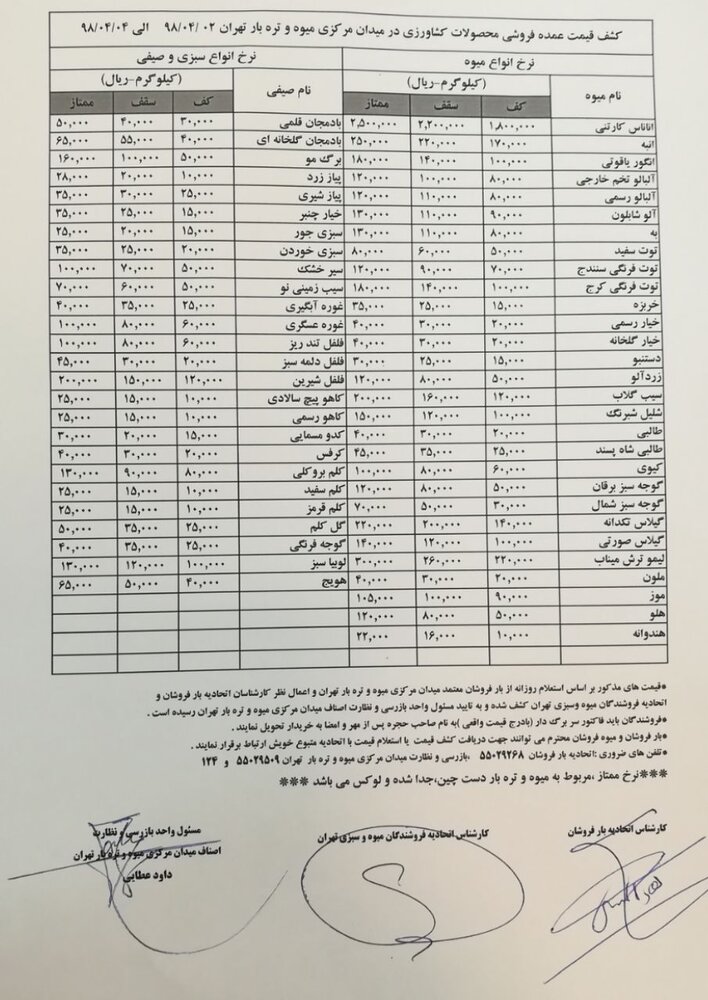 کشف قیمت عمده فروشی محصولات کشاورزی در میدان مرکزی میوه و تره بار تهران ۹۸/۰۴/۰۲ الی ۹۸/۰۴/۰۴
نرخ انواع میوه نرخ انواع سبزی و صیفی
نام میوه (کیلوگرم-ریال) نام صیفی (کیلوگرم-ریال)
کف سقف ممتاز کف سقف ممتاز
اناناس کارتنی ۱,۸۰۰,۰۰۰ ۲,۲۰۰,۰۰۰ ۲,۵۰۰,۰۰۰ بادمجان قلمی ۳۰,۰۰۰ ۴۰,۰۰۰ ۵۰,۰۰۰
انبه ۱۷۰,۰۰۰ ۲۲۰,۰۰۰ ۲۵۰,۰۰۰ بادمجان گلخانه ای ۴۰,۰۰۰ ۵۵,۰۰۰ ۶۵,۰۰۰
انگور یاقوتی ۱۰۰,۰۰۰ ۱۴۰,۰۰۰ ۱۸۰,۰۰۰ برگ مو ۵۰,۰۰۰ ۱۰۰,۰۰۰ ۱۶۰,۰۰۰
آلبالو تخم خارجی ۸۰,۰۰۰ ۱۰۰,۰۰۰ ۱۲۰,۰۰۰ پیاز زرد ۱۰,۰۰۰ ۲۰,۰۰۰ ۲۸,۰۰۰
آلبالو رسمی ۸۰,۰۰۰ ۱۱۰,۰۰۰ ۱۲۰,۰۰۰ پیاز شیری ۲۵,۰۰۰ ۳۰,۰۰۰ ۳۵,۰۰۰
آلو شابلون ۹۰,۰۰۰ ۱۱۰,۰۰۰ ۱۳۰,۰۰۰ خیار چنبر ۱۵,۰۰۰ ۲۵,۰۰۰ ۳۵,۰۰۰
به ۸۰,۰۰۰ ۱۱۰,۰۰۰ ۱۳۰,۰۰۰ سبزی جور ۱۵,۰۰۰ ۲۰,۰۰۰ ۲۵,۰۰۰
توت سفید ۵۰,۰۰۰ ۶۰,۰۰۰ ۸۰,۰۰۰ سبزی خوردن ۲۰,۰۰۰ ۲۵,۰۰۰ ۳۵,۰۰۰
توت فرنگی سنندج ۷۰,۰۰۰ ۹۰,۰۰۰ ۱۲۰,۰۰۰ سیر خشک ۵۰,۰۰۰ ۷۰,۰۰۰ ۱۰۰,۰۰۰
توت فرنگی کرج ۱۰۰,۰۰۰ ۱۴۰,۰۰۰ ۱۸۰,۰۰۰ سیب زمینی نو ۵۰,۰۰۰ ۶۰,۰۰۰ ۷۰,۰۰۰
خربزه ۱۵,۰۰۰ ۲۵,۰۰۰ ۳۵,۰۰۰ غوره آبگیری ۲۵,۰۰۰ ۳۵,۰۰۰ ۴۰,۰۰۰
خیار رسمی ۲۰,۰۰۰ ۳۰,۰۰۰ ۴۰,۰۰۰ غوره عسگری ۶۰,۰۰۰ ۸۰,۰۰۰ ۱۰۰,۰۰۰
خیار گلخانه ۲۰,۰۰۰ ۳۰,۰۰۰ ۴۰,۰۰۰ فلفل تند ریز ۶۰,۰۰۰ ۸۰,۰۰۰ ۱۰۰,۰۰۰
دستنبو ۱۵,۰۰۰ ۲۵,۰۰۰ ۳۰,۰۰۰ فلفل دلمه سبز ۲۰,۰۰۰ ۳۰,۰۰۰ ۴۵,۰۰۰
زردآلو ۵۰,۰۰۰ ۸۰,۰۰۰ ۱۲۰,۰۰۰ فلفل شیرین ۱۲۰,۰۰۰ ۱۵۰,۰۰۰ ۲۰۰,۰۰۰
سیب گلاب ۱۲۰,۰۰۰ ۱۶۰,۰۰۰ ۲۰۰,۰۰۰ کاهو پیچ سالادی ۱۰,۰۰۰ ۱۵,۰۰۰ ۲۵,۰۰۰
شلیل شبرنگ ۱۰۰,۰۰۰ ۱۲۰,۰۰۰ ۱۵۰,۰۰۰ کاهو رسمی ۱۰,۰۰۰ ۱۵,۰۰۰ ۲۵,۰۰۰
طالبی ۲۰,۰۰۰ ۳۰,۰۰۰ ۴۰,۰۰۰ کدو مسمایی ۱۵,۰۰۰ ۲۰,۰۰۰ ۳۰,۰۰۰
طالبی شاه پسند ۲۵,۰۰۰ ۳۵,۰۰۰ ۴۵,۰۰۰ کرفس ۲۰,۰۰۰ ۳۰,۰۰۰ ۴۰,۰۰۰
کیوی ۶۰,۰۰۰ ۸۰,۰۰۰ ۱۰۰,۰۰۰ کلم بروکلی ۸۰,۰۰۰ ۹۰,۰۰۰ ۱۳۰,۰۰۰
گوجه سبز برقان ۵۰,۰۰۰ ۸۰,۰۰۰ ۱۲۰,۰۰۰ کلم سفید ۱۰,۰۰۰ ۱۵,۰۰۰ ۲۵,۰۰۰
گوجه سبز شمال ۳۰,۰۰۰ ۵۰,۰۰۰ ۷۰,۰۰۰ کلم قرمز ۱۰,۰۰۰ ۱۵,۰۰۰ ۲۵,۰۰۰
گیلاس تکدانه ۱۴۰,۰۰۰ ۲۰۰,۰۰۰ ۲۲۰,۰۰۰ گل کلم ۲۵,۰۰۰ ۳۵,۰۰۰ ۵۰,۰۰۰
گیلاس صورتی ۱۰۰,۰۰۰ ۱۲۰,۰۰۰ ۱۴۰,۰۰۰ گوجه فرنگی ۲۵,۰۰۰ ۳۵,۰۰۰ ۴۰,۰۰۰
لیمو ترش میناب ۲۲۰,۰۰۰ ۲۶۰,۰۰۰ ۳۰۰,۰۰۰ لوبیا سبز ۱۰۰,۰۰۰ ۱۲۰,۰۰۰ ۱۳۰,۰۰۰
ملون ۲۰,۰۰۰ ۳۰,۰۰۰ ۴۰,۰۰۰ هویج ۴۰,۰۰۰ ۵۰,۰۰۰ ۶۵,۰۰۰
موز ۹۰,۰۰۰ ۱۰۰,۰۰۰ ۱۰۵,۰۰۰
هلو ۵۰,۰۰۰ ۸۰,۰۰۰ ۱۲۰,۰۰۰
هندوانه ۱۰,۰۰۰ ۱۶,۰۰۰ ۲۲,۰۰۰
*قیمت های مذکور بر اساس استعلام روزانه از بار فروشان معتمد میدان مرکزی میوه و تره بار تهران و اعمال نظر کارشناسان اتحادیه بار فروشان و
اتحادیه فروشندگان میوه وسبزی تهران کشف شده و به تایید مسئول واحد بازرسی و نظارت اصناف میدان مرکزی میوه و تره بار تهران رسیده است .
*فروشندگان باید فاکتور سر برگ دار (بادرج قیمت واقعی )به نام صاحب حجره پس از مهر و امضا به خریدار تحویل نمایند .
*بار فروشان و میوه فروشان محترم می توانند جهت دریافت کشف قیمت یا استعلام قیمت با اتحادیه متبوع خویش ارتباط برقرار نمایند .
*تلفن های ضروری :اتحادیه بار فروشان ۵۵۰۲۹۲۶۸ ,بازرسی و نظارت میدان مرکزی میوه و تره بار تهران ۵۵۰۲۹۵۰۹ و ۱۲۴
***نرخ ممتاز ,مربوط به میوه و تره بار دست چین,جدا شده و لوکس می باشد ***
کارشناس اتحادیه بار فروشان کارشناس اتحادیه فروشندگان میوه و سبزی تهران مسئول واحد بازرسی و نظارت
اصناف میدان مرکزی میوه و تره بار تهران
داود عطایی